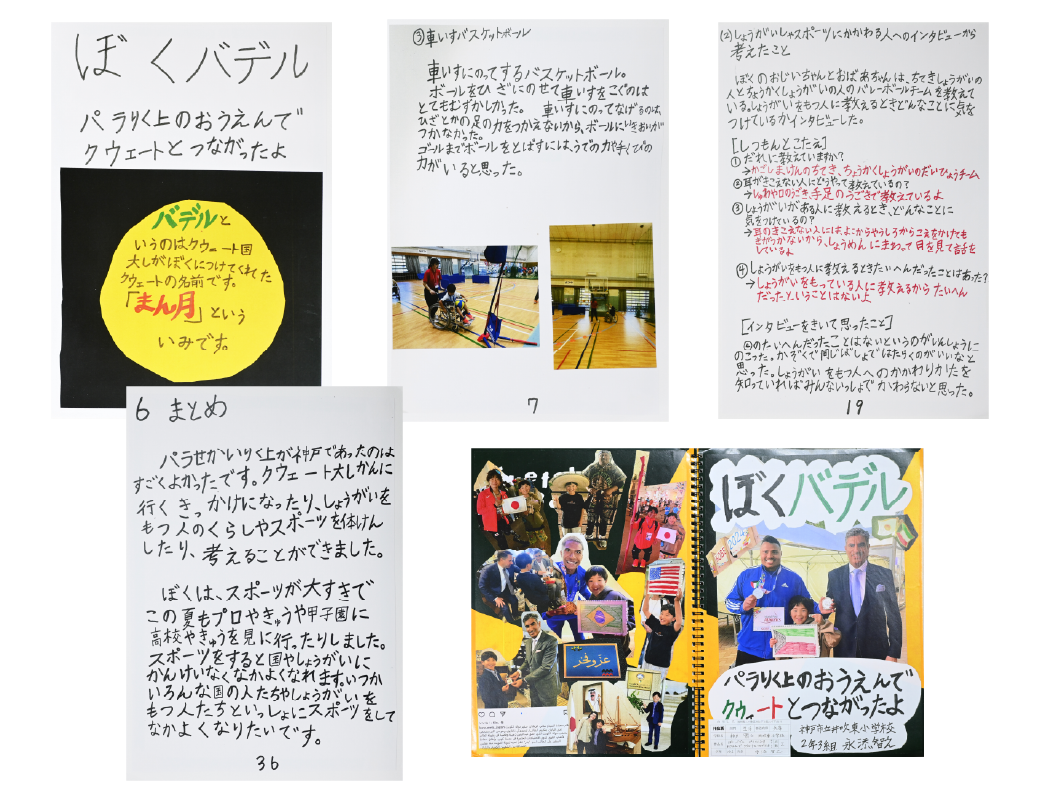 ぼくバデル
パラりく上のおうえんで
クウェートとつながったよ
バデルと
いうのはクウェート国
大しがぼくにつけてくれた
クウェートの名前です。
「まん月」という
いみです。
③車いすバスケットボール
車いすにのってするバスケットボール。
ボールをひざにのせて車いすをこぐのは
とてもむずかしかった。車いすにのってなげるのは、
ひざとかの足の力をつかえないから、ボールにいきおいが
つかなかった。
ゴールまでボールをとばすには、うでの力や手くびの
力がいると思った。
7
(2)しょうがいしゃスポーツにかかわる人へのインタビューから
考えたこと
ぼくのおじいちゃんとおばあちゃんは、ちてきしょうがいの
人とちょうかくしょうがいの人のバレーボールチームを教えて
いる。しょうがいをもつ人に教えるときどんなことに気を
つけているかインタビューした。
[しつもんとこたえ]
①だれに教えていますか?
→かごしまけんのちてき、ちょうかくしょうがいのだいひょうチーム
②耳がきこえない人にどうやって教えているの?
→しゅわや口のうごき、手足のうごきで教えているよ
③しょうがいがある人に教えるとき、どんなことに
気をつけているの?
→耳のきこえない人には、よこからやうしろからこえをかけても
きがつかないから、しょうめんにまわって目を見て会話を
しているよ
④しょうがいをもつ人に教えるときたいへんだったことはあった?
→しょうがいをもっている人に教えるからたいへん
だったということはないよ
[インタビューをきいて思ったこと]
④のたいへんだったことはないというのがいんしょうに
のこった。かぞくで同じばしょではたらくのがいいなと
思った。しょうがいをもつ人へのかかわりかたを
知っていればみんないっしょでかわらないと思った。
19
6 まとめ
パラせかいりく上が神戸であったのは
すごくよかったです。クウェート大しかんに
行くきっかけになったり、しょうがいを
もつ人のくらしやスポーツを体けん
したり、考えることができました。
ぼくは、スポーツが大すきで
この夏もプロやきゅうや甲子園に
高校やきゅうを見に行ったりしました。
スポーツをすると国やしょうがいに
かんけいなくなかよくなれます。いつか
いろんな国の人たちやしょうがいを
もつ人たちといっしょにスポーツをして
なかよくなりたいです。
36
ぼくバデル
パラりく上のおうえんで
クウェートとつながったよ
神戸市立井吹東小学校
2年3組